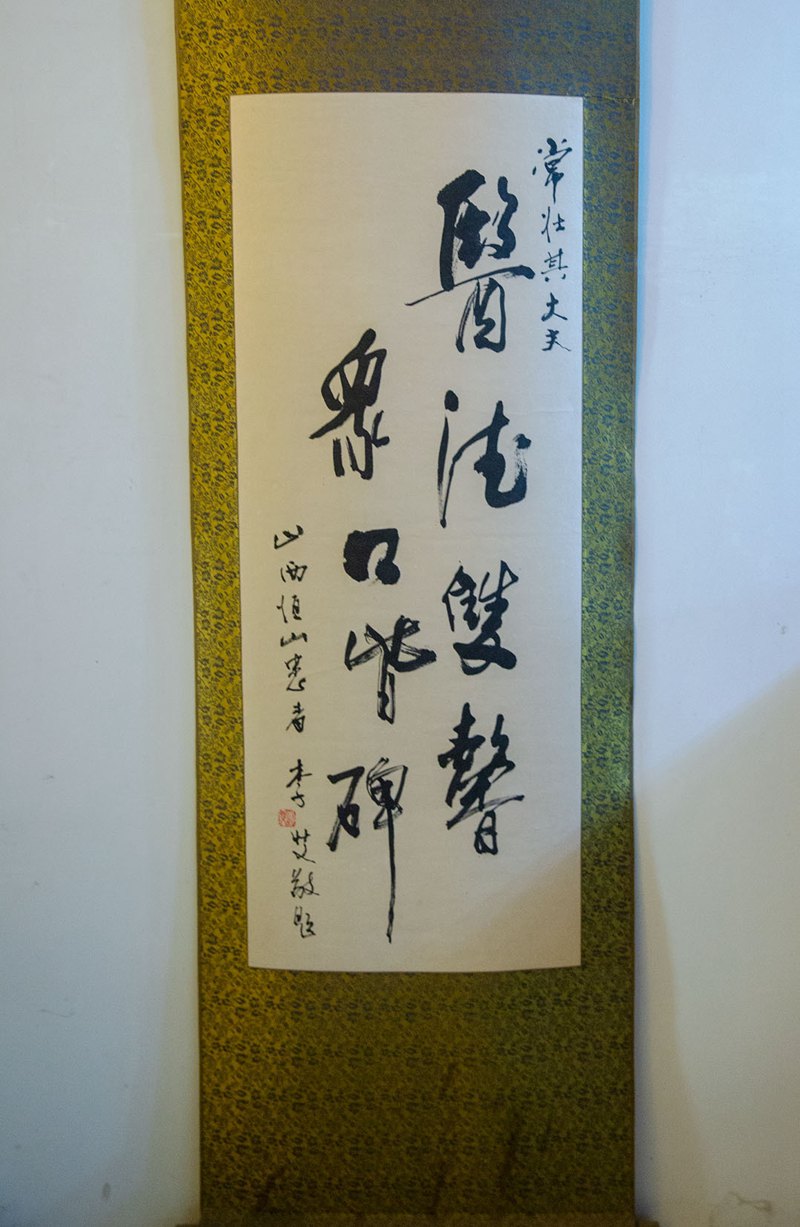 常壯其大夫
醫德雙馨
眾口皆碑
山西恒山患者 李艾敬題